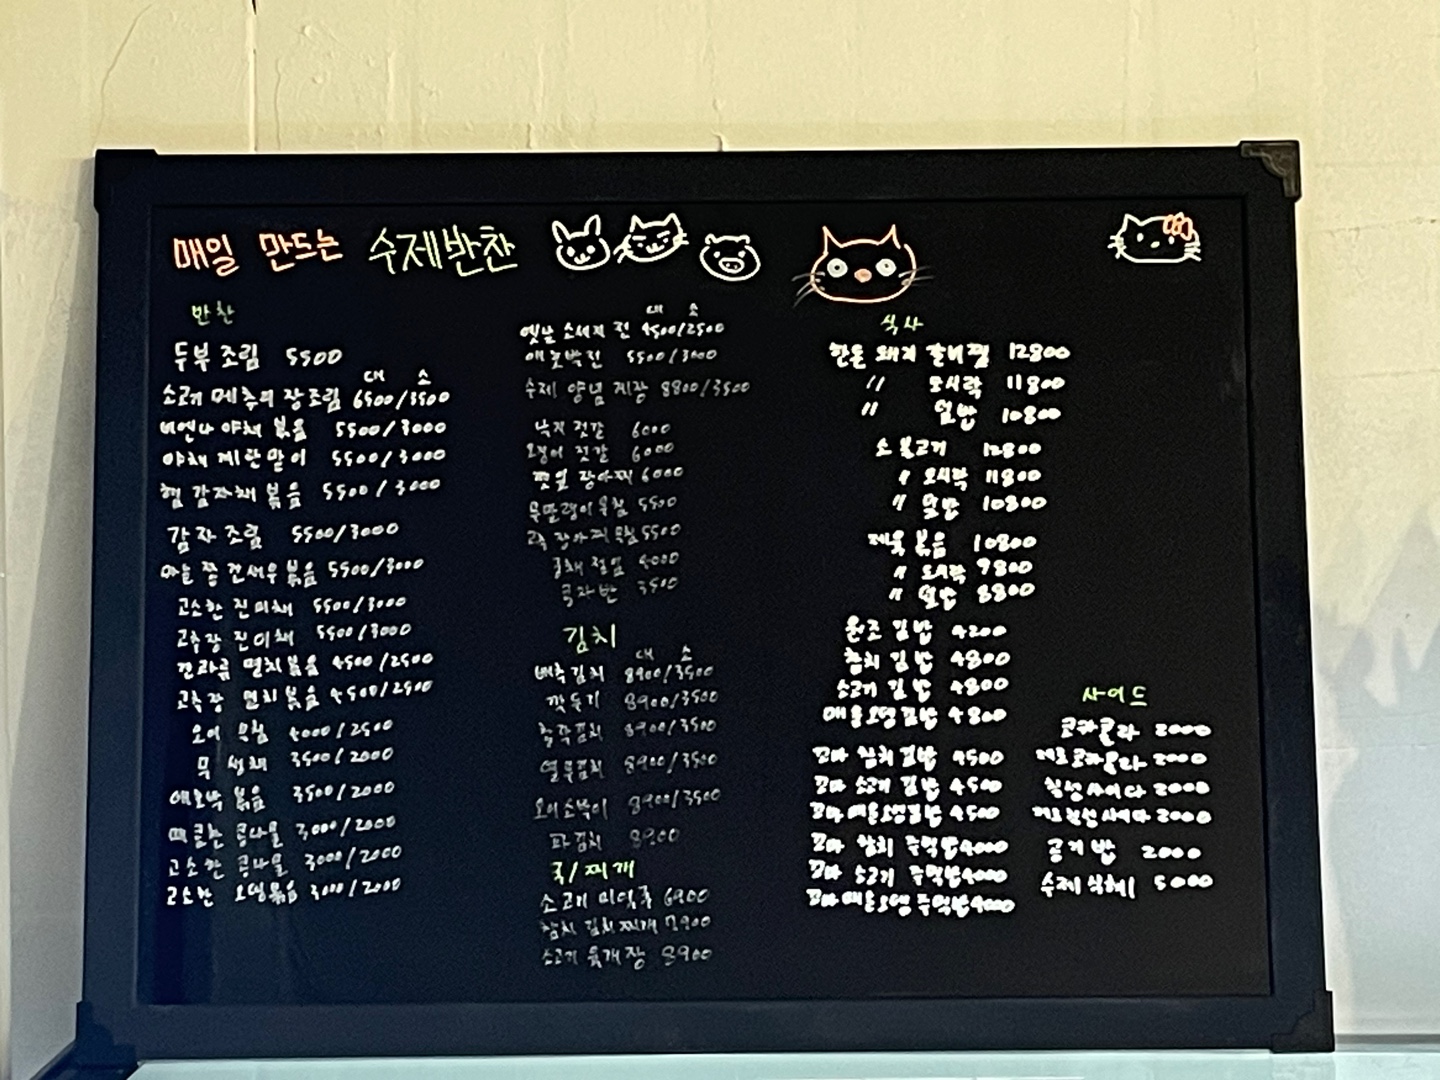 매일 만드는 수제반찬
반찬
두부조림 5500
대 소
소고기 메추리 장조림 6500/3500
비엔나 야채 볶음 5500/3000
야채 계란말이 5500/3000
햄 감자채 볶음 5500/3000
감자 조림 5500/3000
마늘쫑 건새우 볶음 5500/3000
고소한 진미채 5500/3000
고추장 진미채 5500/3000
견과류 멸치볶음 4500/2500
고추장 멸치볶음 4500/2500
오이 무침 4000/2500
무 생채 3500/2000
애호박 볶음 3500/2000
매콤한 콩나물 3000/2000
고소한 콩나물 3000/2000
고소한 오뎅볶음 3000/2000
대 소
옛날 소세지 전 4500/2500
애호박전 5500/3000
수제 양념 게장 8800/3500
낙지 젓갈 6000
오징어 젓갈 6000
깻잎 장아찌 6000
무말랭이 무침 5500
고추 장아찌 무침 5500
절임 4000
콩자반 3500
김치
대 소
배추김치 8900/3500
깍두기 8900/3500
총각김치 8900/3500
열무김치 8900/3500
오이소박이 8900/3500
파김치 8900
국/찌개
소고기 미역국 6900
참치 김치찌개 7900
소고기 육개장 8900
식사
한돈 돼지 갈비찜 12800
〃 도시락 11800
〃 덮밥 10800
소 불고기 12800
〃 도시락 11800
〃 덮밥 10800
제육 볶음 10800
〃 도시락 9800
〃 덮밥 8800
원조 김밥 4200
참치 김밥 4800
소고기 김밥 4800
매운오뎅김밥 4800
꼬마 참치 김밥 4500
꼬마 소고기 김밥 4500
꼬마 매운오뎅김밥 4500
꼬마 참치 주먹밥 4000
꼬마 소고기 주먹밥 4000
꼬마 매운오뎅 주먹밥 4000
사이드
코카콜라 2000
제로코카콜라 2000
칠성사이다 2000
제로칠성사이다 2000
공기밥 2000
수제식혜 5000